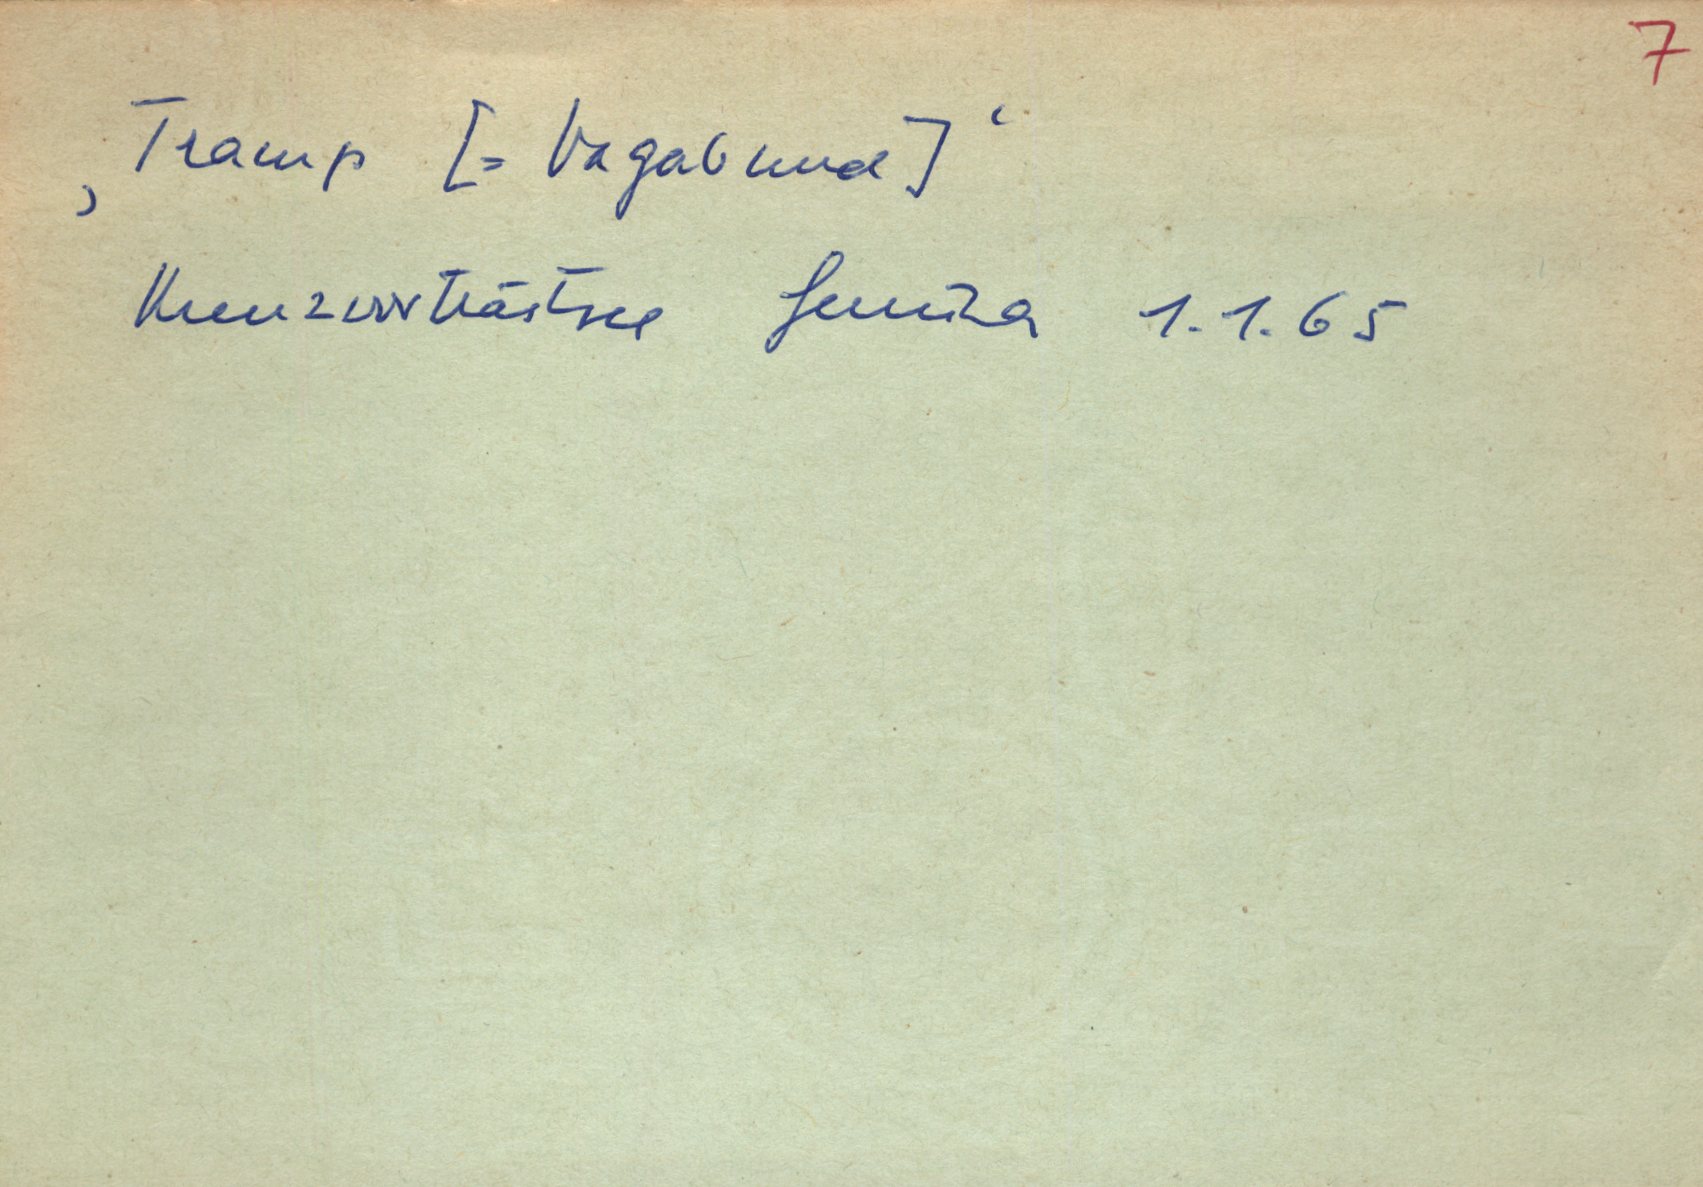 7
‚Tramp [= Vagabund]‘
Kreuzworträtsel 1.1.65